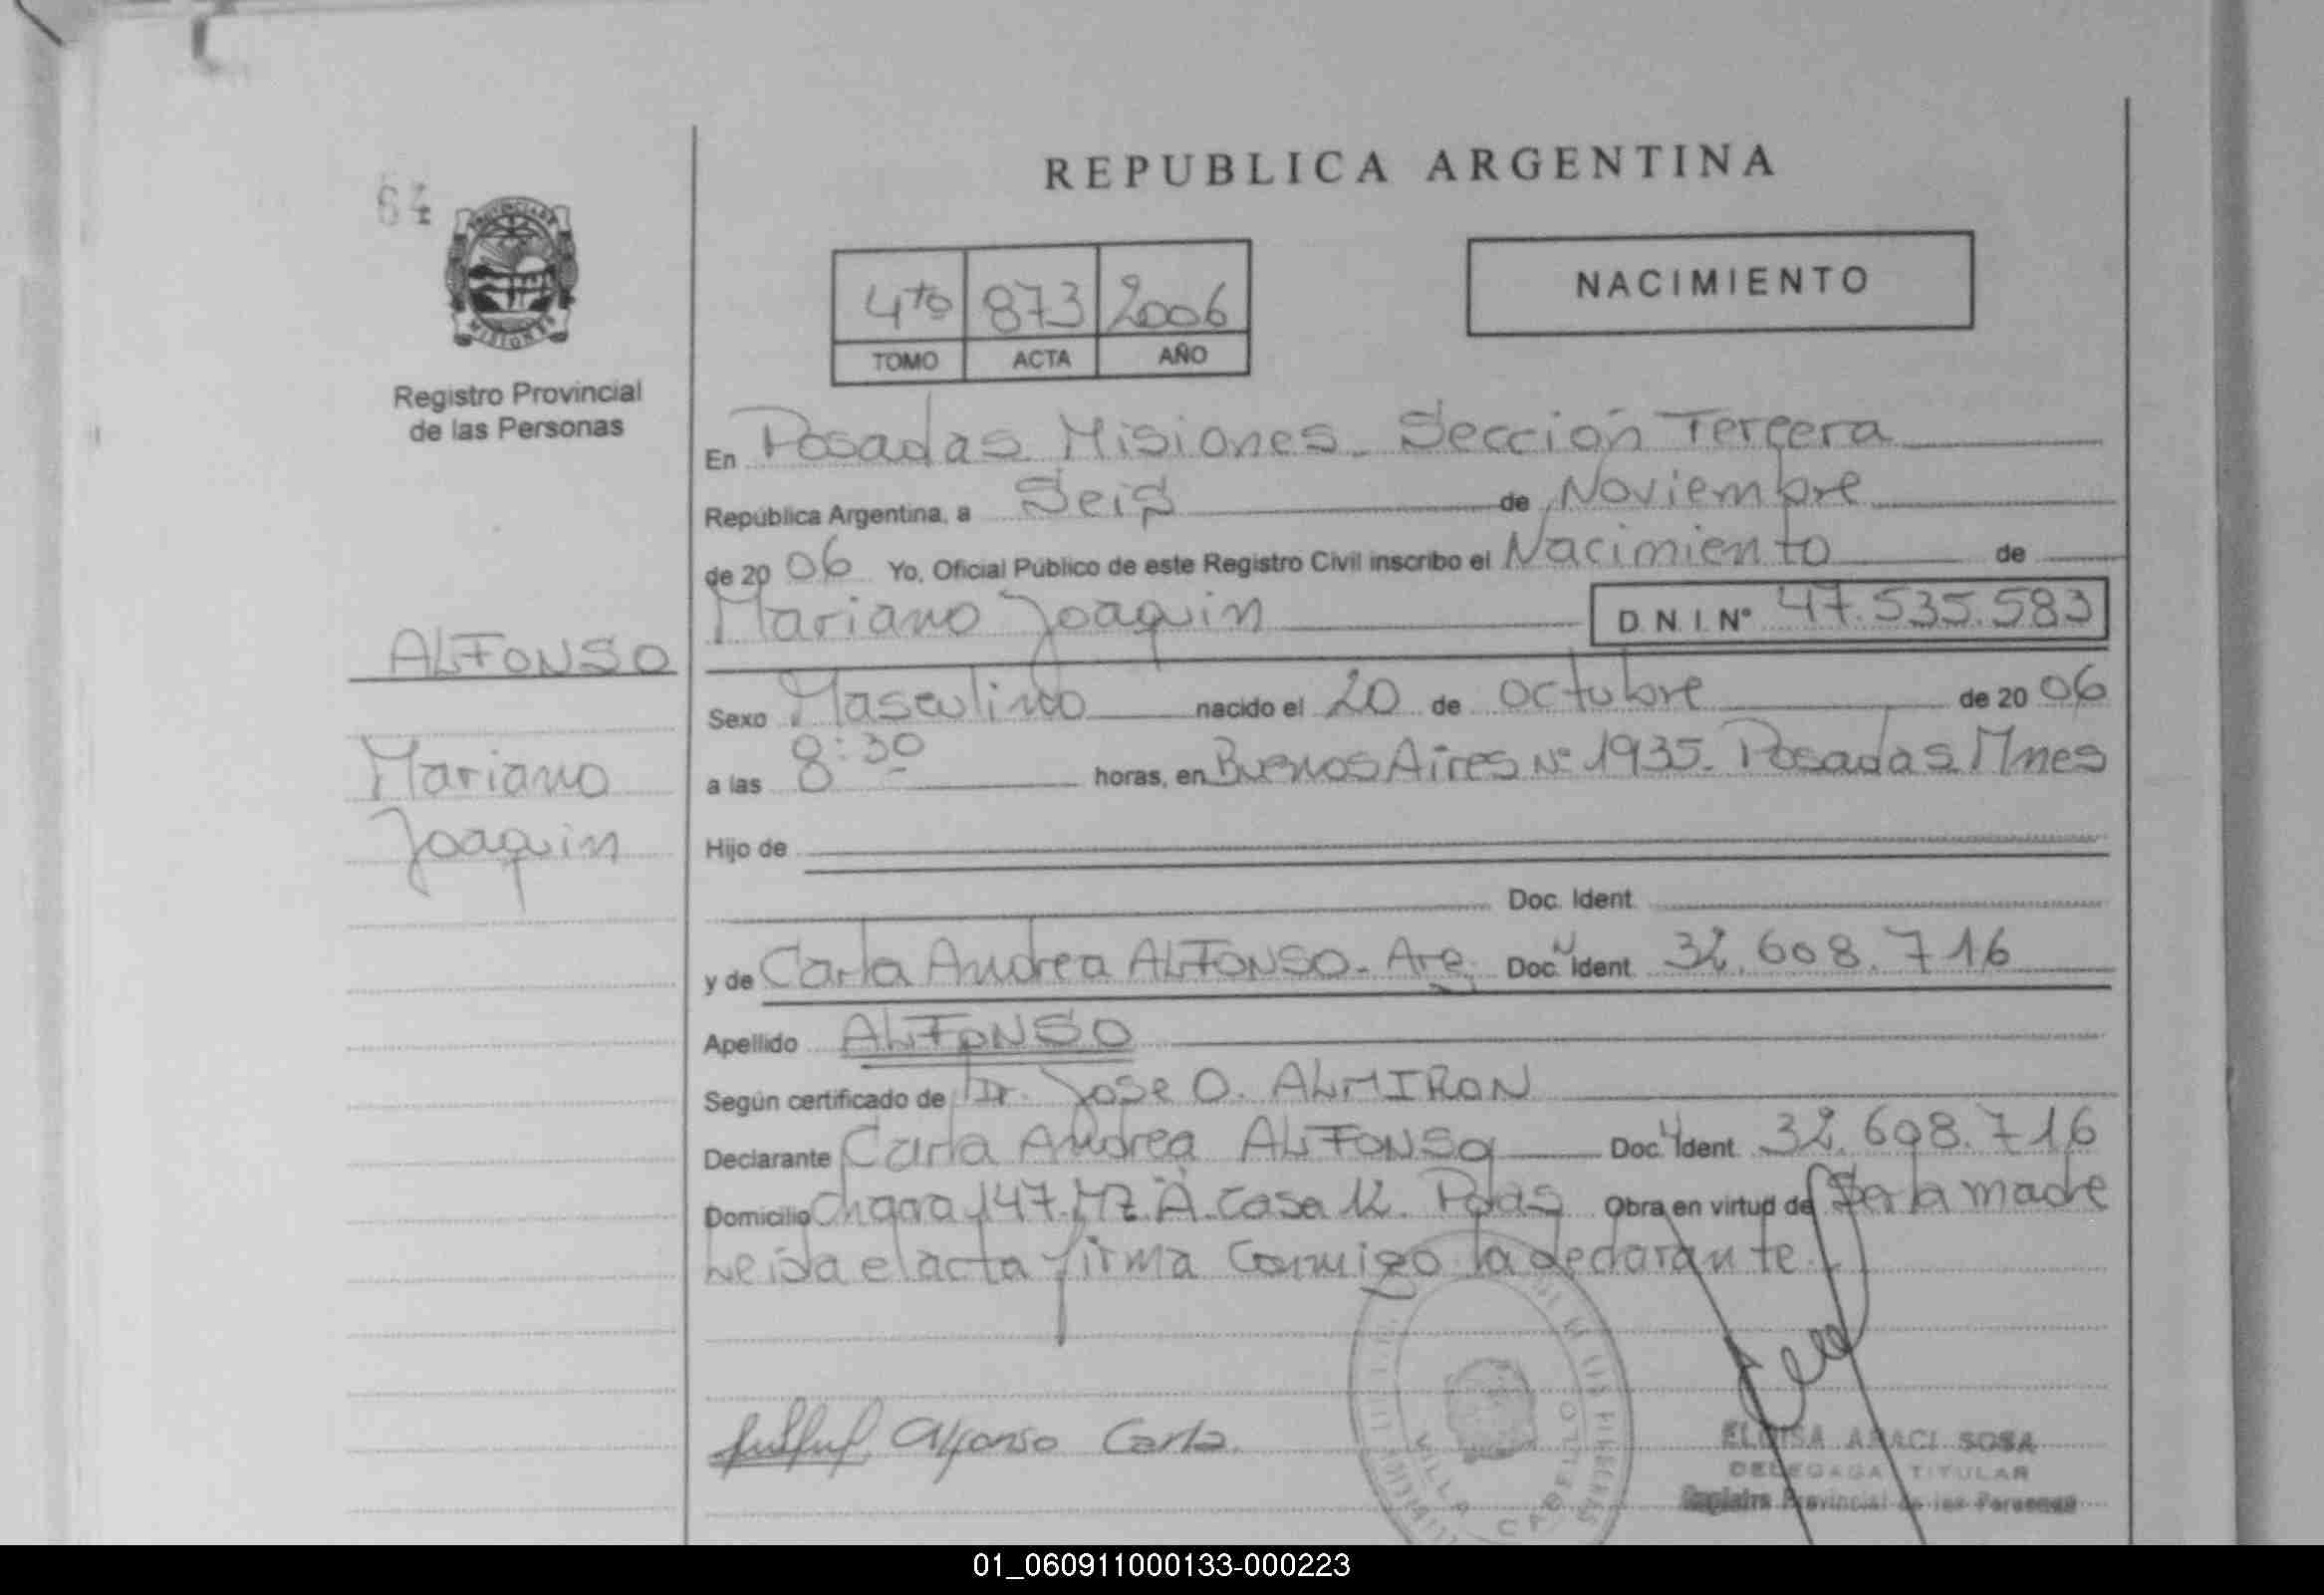 REPUBLICA ARGENTINA
64
PROVINCIA DE
MISIONES
NACIMIENTO
4to 873 2006
TOMO ACTA AÑO
Registro Provincial
de las Personas
En Posadas Misiones. Sección Tercera
República Argentina, a Seis de Noviembre
de 20 06 Yo, Oficial Público de este Registro Civil inscribo el Nacimiento de
Mariano Joaquin D.N.I. Nº 47.535.583
ALFONSO
Sexo Masculino nacido el 20 de octubre de 20 06
Mariano
a las 8:30 horas, en Buenos Aires Nº 1935. Posadas Mnes
Joaquin
Hijo de
Doc. Ident.
y de Carla Andrea ALFONSO. Arg. Doc. Ident. 32.608.716
Apellido ALFONSO
Según certificado de Dr. Jose O. ALMIRON
Declarante Carla Andrea ALFONSO Doc. Ident. 32.608.716
Domicilio Chacra 147. MZ A. Casa 12. Pdas Obra en virtud de Ser la madre
Leida el acta firma Conmigo la declarante.
Alfonso Carla.
ELOISA ARACI SOSA
DELEGADA TITULAR
Registro Provincial de las Personas
01_060911000133-000223